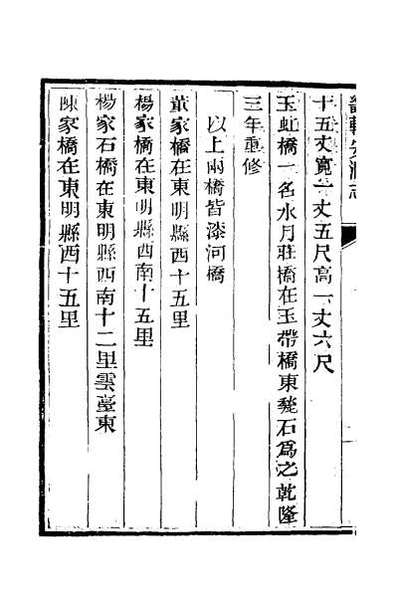 十五丈寛一丈五尺高一丈六尺
玉虹橋一名水月莊橋在玉帶橋東甃石爲之乾隆
三年重修
以上兩橋皆漆河橋
董家橋在東明縣西十五里
楊家橋在東明縣西南十五里
楊家石橋在東明縣西南十二里雲臺東
陳家橋在東明縣西十五里